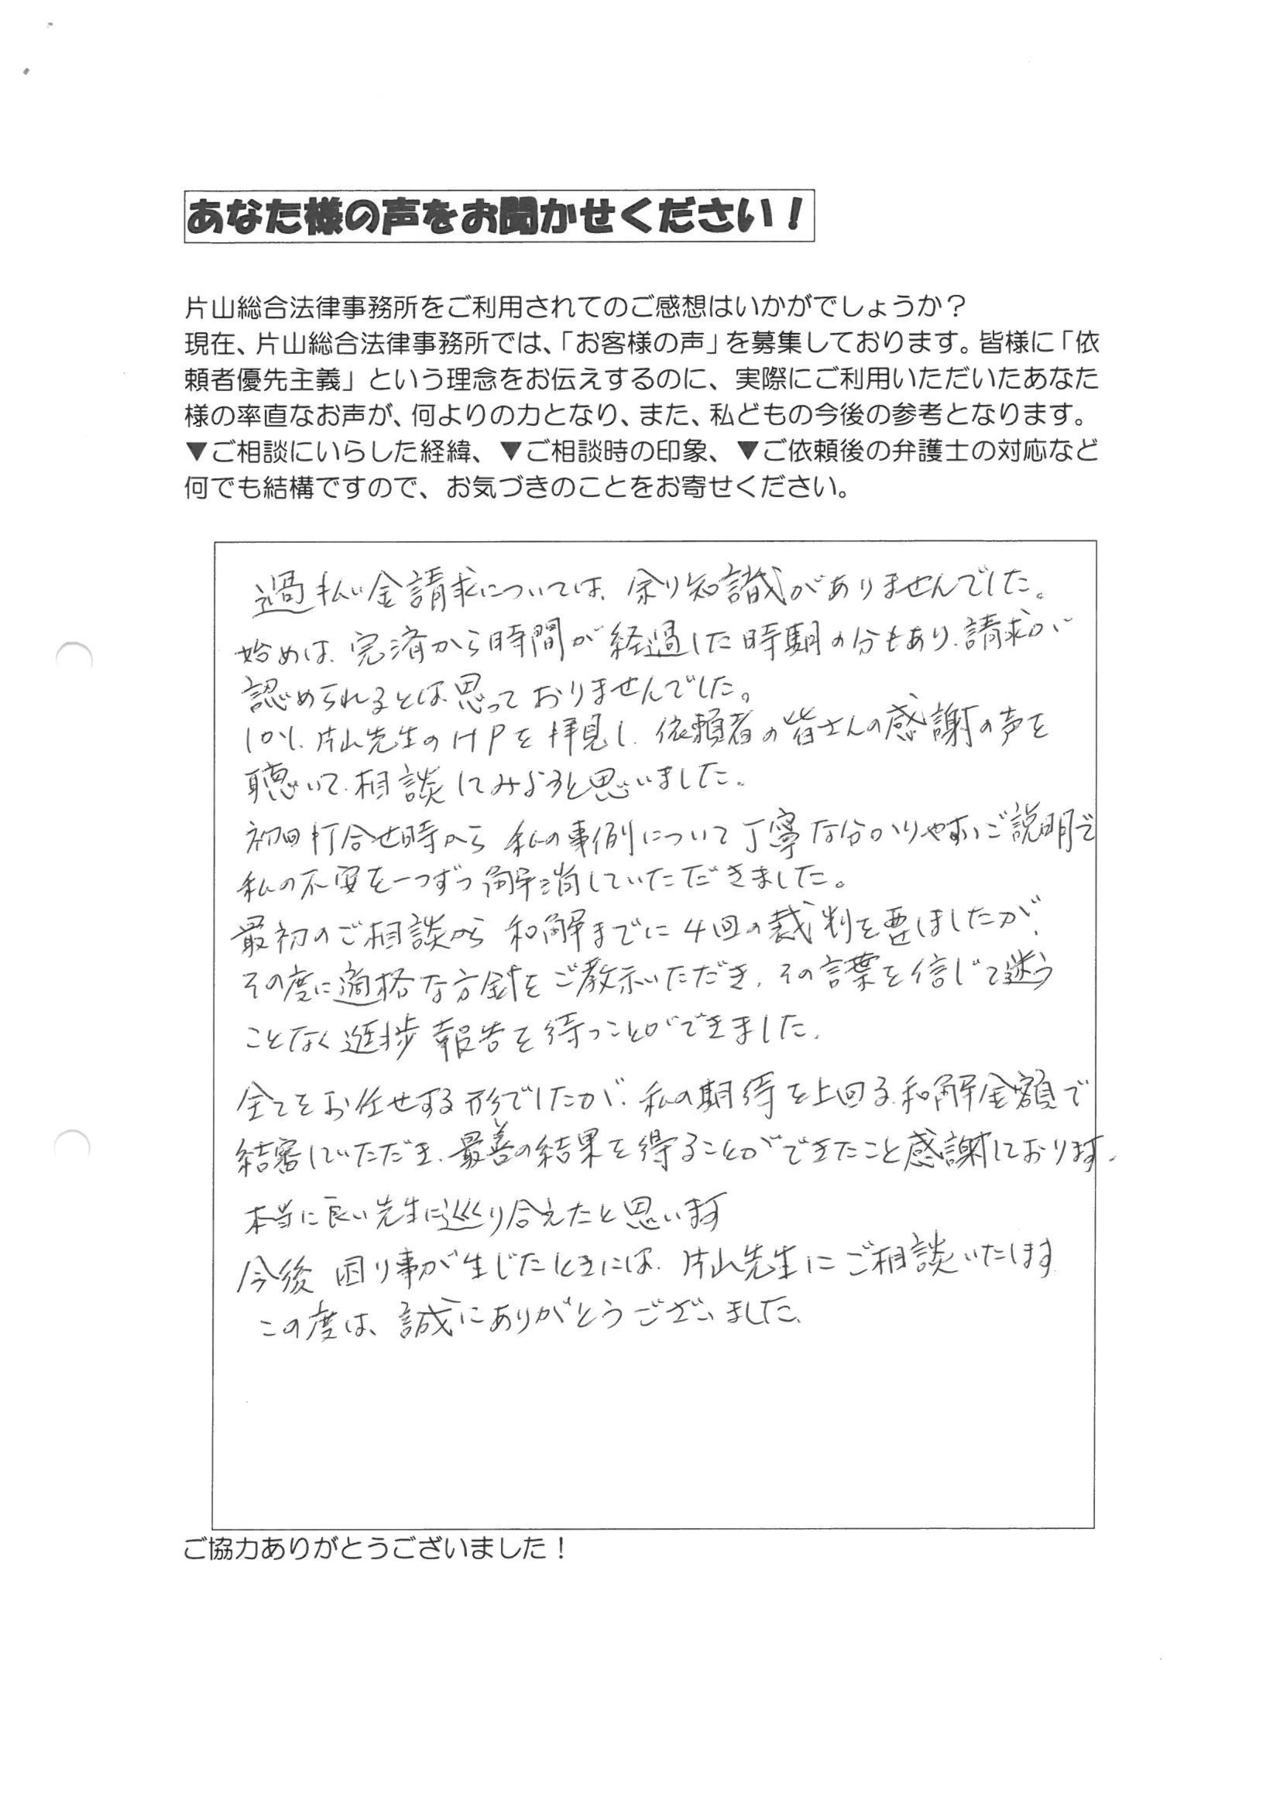 あなた様の声をお聞かせください！
片山総合法律事務所をご利用されてのご感想はいかがでしょうか？
現在、片山総合法律事務所では、「お客様の声」を募集しております。皆様に「依
頼者優先主義」という理念をお伝えするのに、実際にご利用いただいたあなた
様の率直なお声が、何よりの力となり、また、私どもの今後の参考となります。
▼ご相談にいらした経緯、▼ご相談時の印象、▼ご依頼後の弁護士の対応など
何でも結構ですので、お気づきのことをお寄せください。
過払い金請求については、余り知識がありませんでした。
始めは、完済から時間が経過した時期の分もあり、請求が
認められるとは思っておりませんでした。
しかし、片山先生のHPを拝見し、依頼者の皆さんの感謝の声を
聴いて、相談してみようと思いました。
初回打合せ時から 私の事例について丁寧な分かりやすいご説明で
私の不安を一つずつ解消していただきました。
最初のご相談から 和解までに4回の裁判を要しましたが、
その度に適格な方針をご教示いただき、その言葉を信じて迷う
ことなく進捗報告を待つことができました。
全てをお任せする形でしたが、私の期待を上回る和解金額で
結審していただき、最善の結果を得ることができたこと感謝しております。
本当に良い先生に巡り合えたと思います
今後 困り事が生じたときには、片山先生にご相談いたします
この度は、誠にありがとうございました。
ご協力ありがとうございました！